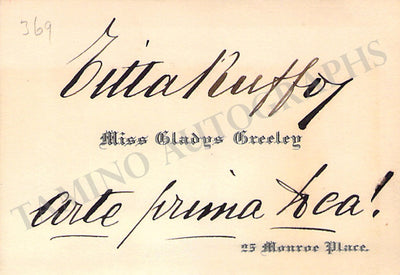 369
Titta Ruffo
Miss Gladys Greeley
arte prima Dea!
25 Monroe Place.
TAMINO AUTOGRAPHS